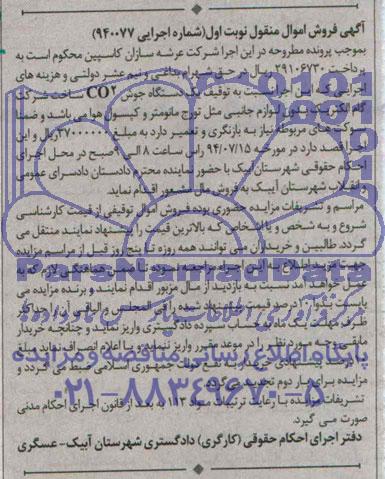 آگهی فروش اموال منقول نوبت اول(شماره اجرایی ۹۴۰۰۷۷)
بموجب پرونده مطروحه در این اجرا شرکت عرشه سازان کاسپین محکوم است به
پرداخت ۲۹۱۰۶۷۳۰ ریال در حق شهرام بداغی و نیم عشر دولتی و هزینه های
اجرائی که این اجرا نسبت به توقیف یک دستگاه جوش CO۲ ساخت شرکت
گام الکتریک بدون لوازم جانبی مثل تورچ مانومتر و کپسول هوا می باشد و ضمنا
سوکت های مربوطه نیاز به بازنگری و تعمیر دارد به مبلغ ۳۷۰۰۰۰۰۰ ریال و این
اجرا قصد دارد در مورخه ۹۴/۰۷/۱۵ راس ساعت ۸ الی ۹ صبح در محل اجرای
احکام حقوقی شهرستان آبیک با حضور نماینده محترم دادستان دادسرای عمومی
و انقلاب شهرستان آبیک به فروش مال مشعور اقدام نماید.
مراسم و تشریفات مزایده حضوری بوده فروش اموال توقیفی از قیمت کارشناسی
شروع و به شخص و یا اشخاص که بالاترین قیمت را پیشنهاد نمایند منتقل می
گردد. طالبین و خریداران می توانند همه روزه تا پنج روز قبل از مراسم مزایده
جهت مزید اطلاع به این اجراء مراجعه نموده تا ضمن هماهنگی لازم که به
عمل خواهد آمد نسبت به بازدید از مال مزبور اقدام نمایند و برنده مزایده می
بایست ۱۰ درصد قیمت پیشنهاد شده را فی المجلس و الباقی آن را حداکثر
ظرف مهلت یک ماه به حساب سپرده دادگستری واریز نماید و چنانچه خریدار
مابقی وجه مورد نظر را در موعد مقرر واریز ننماید و یا اعلام انصراف نماید مبلغ
۱۰ درصد پیشنهادی خریدار به نفع دولت جمهوری اسلامی ضبط می گردد و
مزایده برای بار دوم تجدید می گردد.
تشریفات مزایده با رعایت ترتیبات مواد ۱۱۳ به بعد از قانون اجرای احکام مدنی
صورت می گیرد.
دفتر اجرای احکام حقوقی (کارگری) دادگستری شهرستان آبیک- عسگری
پایگاه اطلاع رسانی مناقصه و مزایده
۰۲۱-۸۸۳۴۹۶۷۰-۵